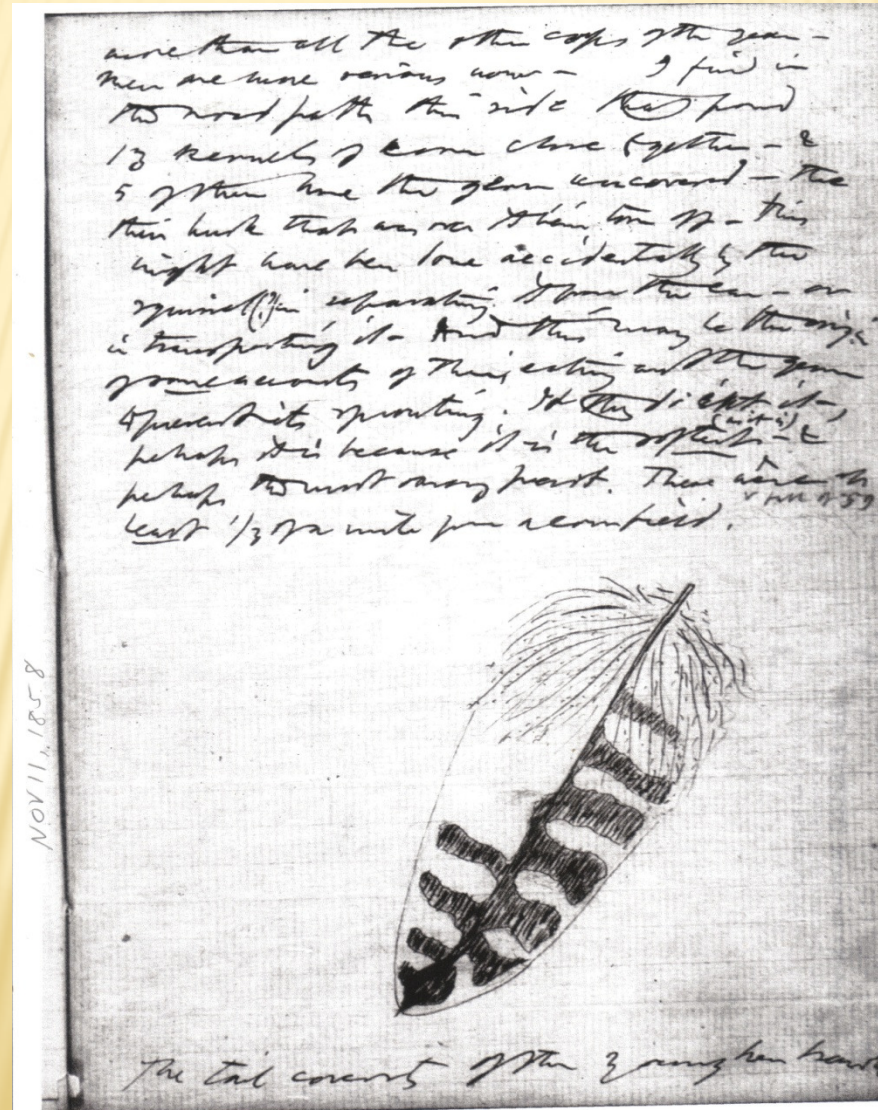 more than all the other crops of the year –
are more various now – I find in
the wood path this side that pond
13 kernels of corn close together – &
5 of them have the germ uncovered – the
thin husk that was over it being torn off – This
might have been done accidentally by the
squirrel (?) in separating it from the ear – or
in transporting it – And this may be the origin
of some accounts of their eating out the germ
to prevent its sprouting. If they do eat it –,
(as it is)
perhaps it is because it is the softest – &
perhaps the most savory part. These were at
least 1/3 of a mile from a cornfield.
NOV 11, 1858
The tail coverts of the young hen hawk